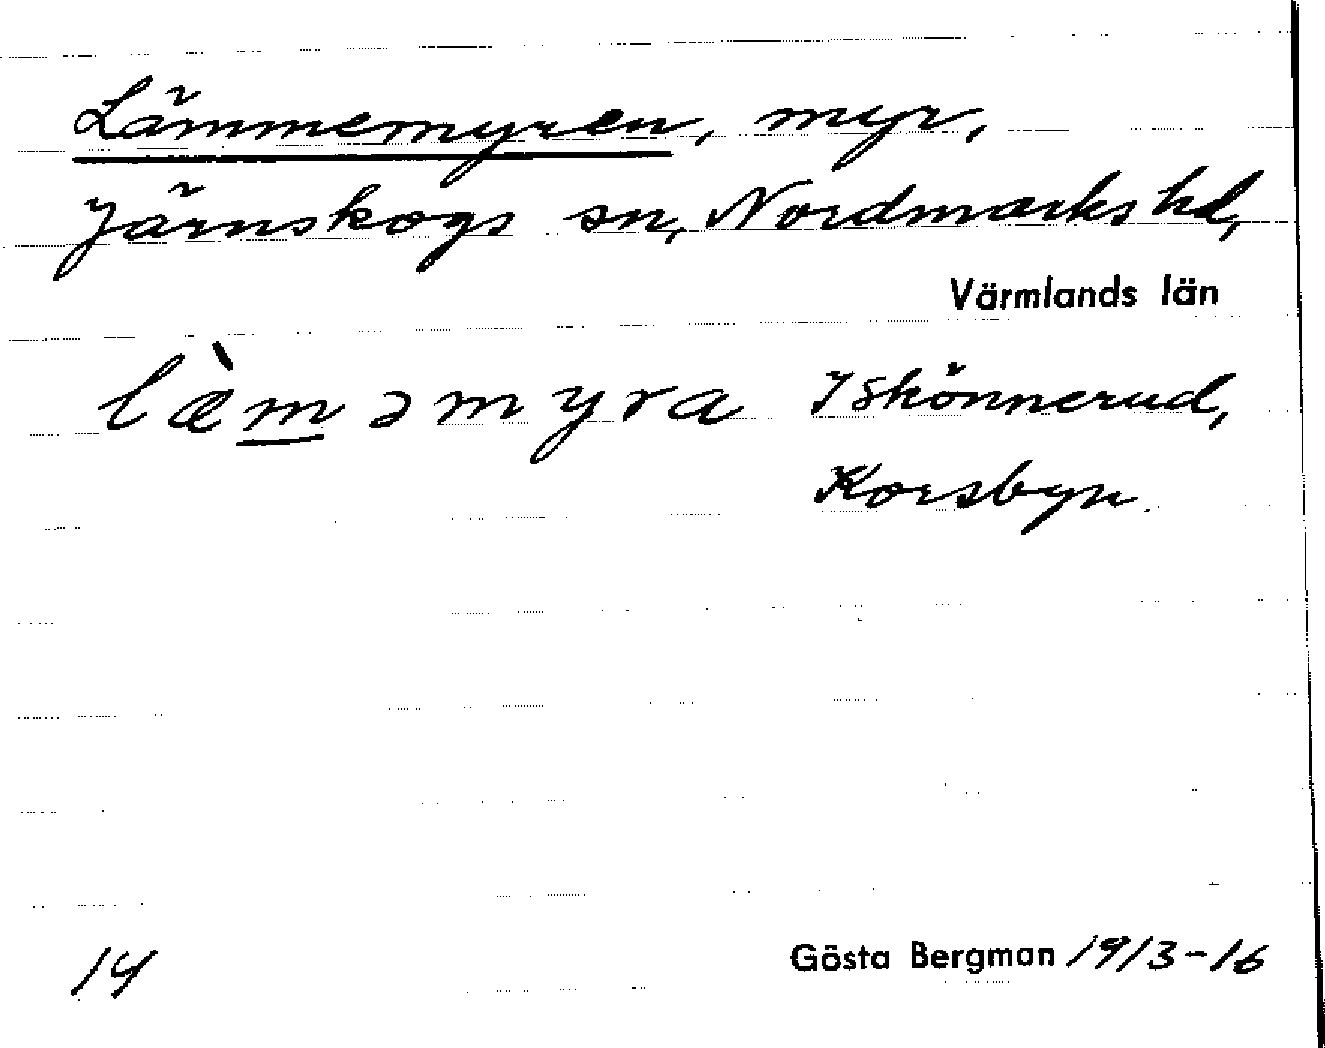 Lämmemyren, myr,
Järnskogs sn, Nordmarks hd,
Värmlands län
læ̀m̲əmyra I Skönnerud,
Korsbyn.
14
Gösta Bergman 1913-16